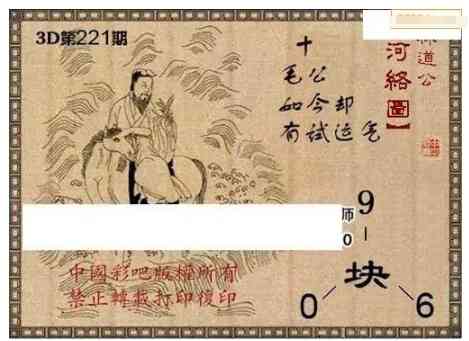 3D第221期
十
毛公
如今却
有试运气
道公
河絡圖】
师
0
9
块
0 6
中國彩吧版權所有
禁止轉載打印復印